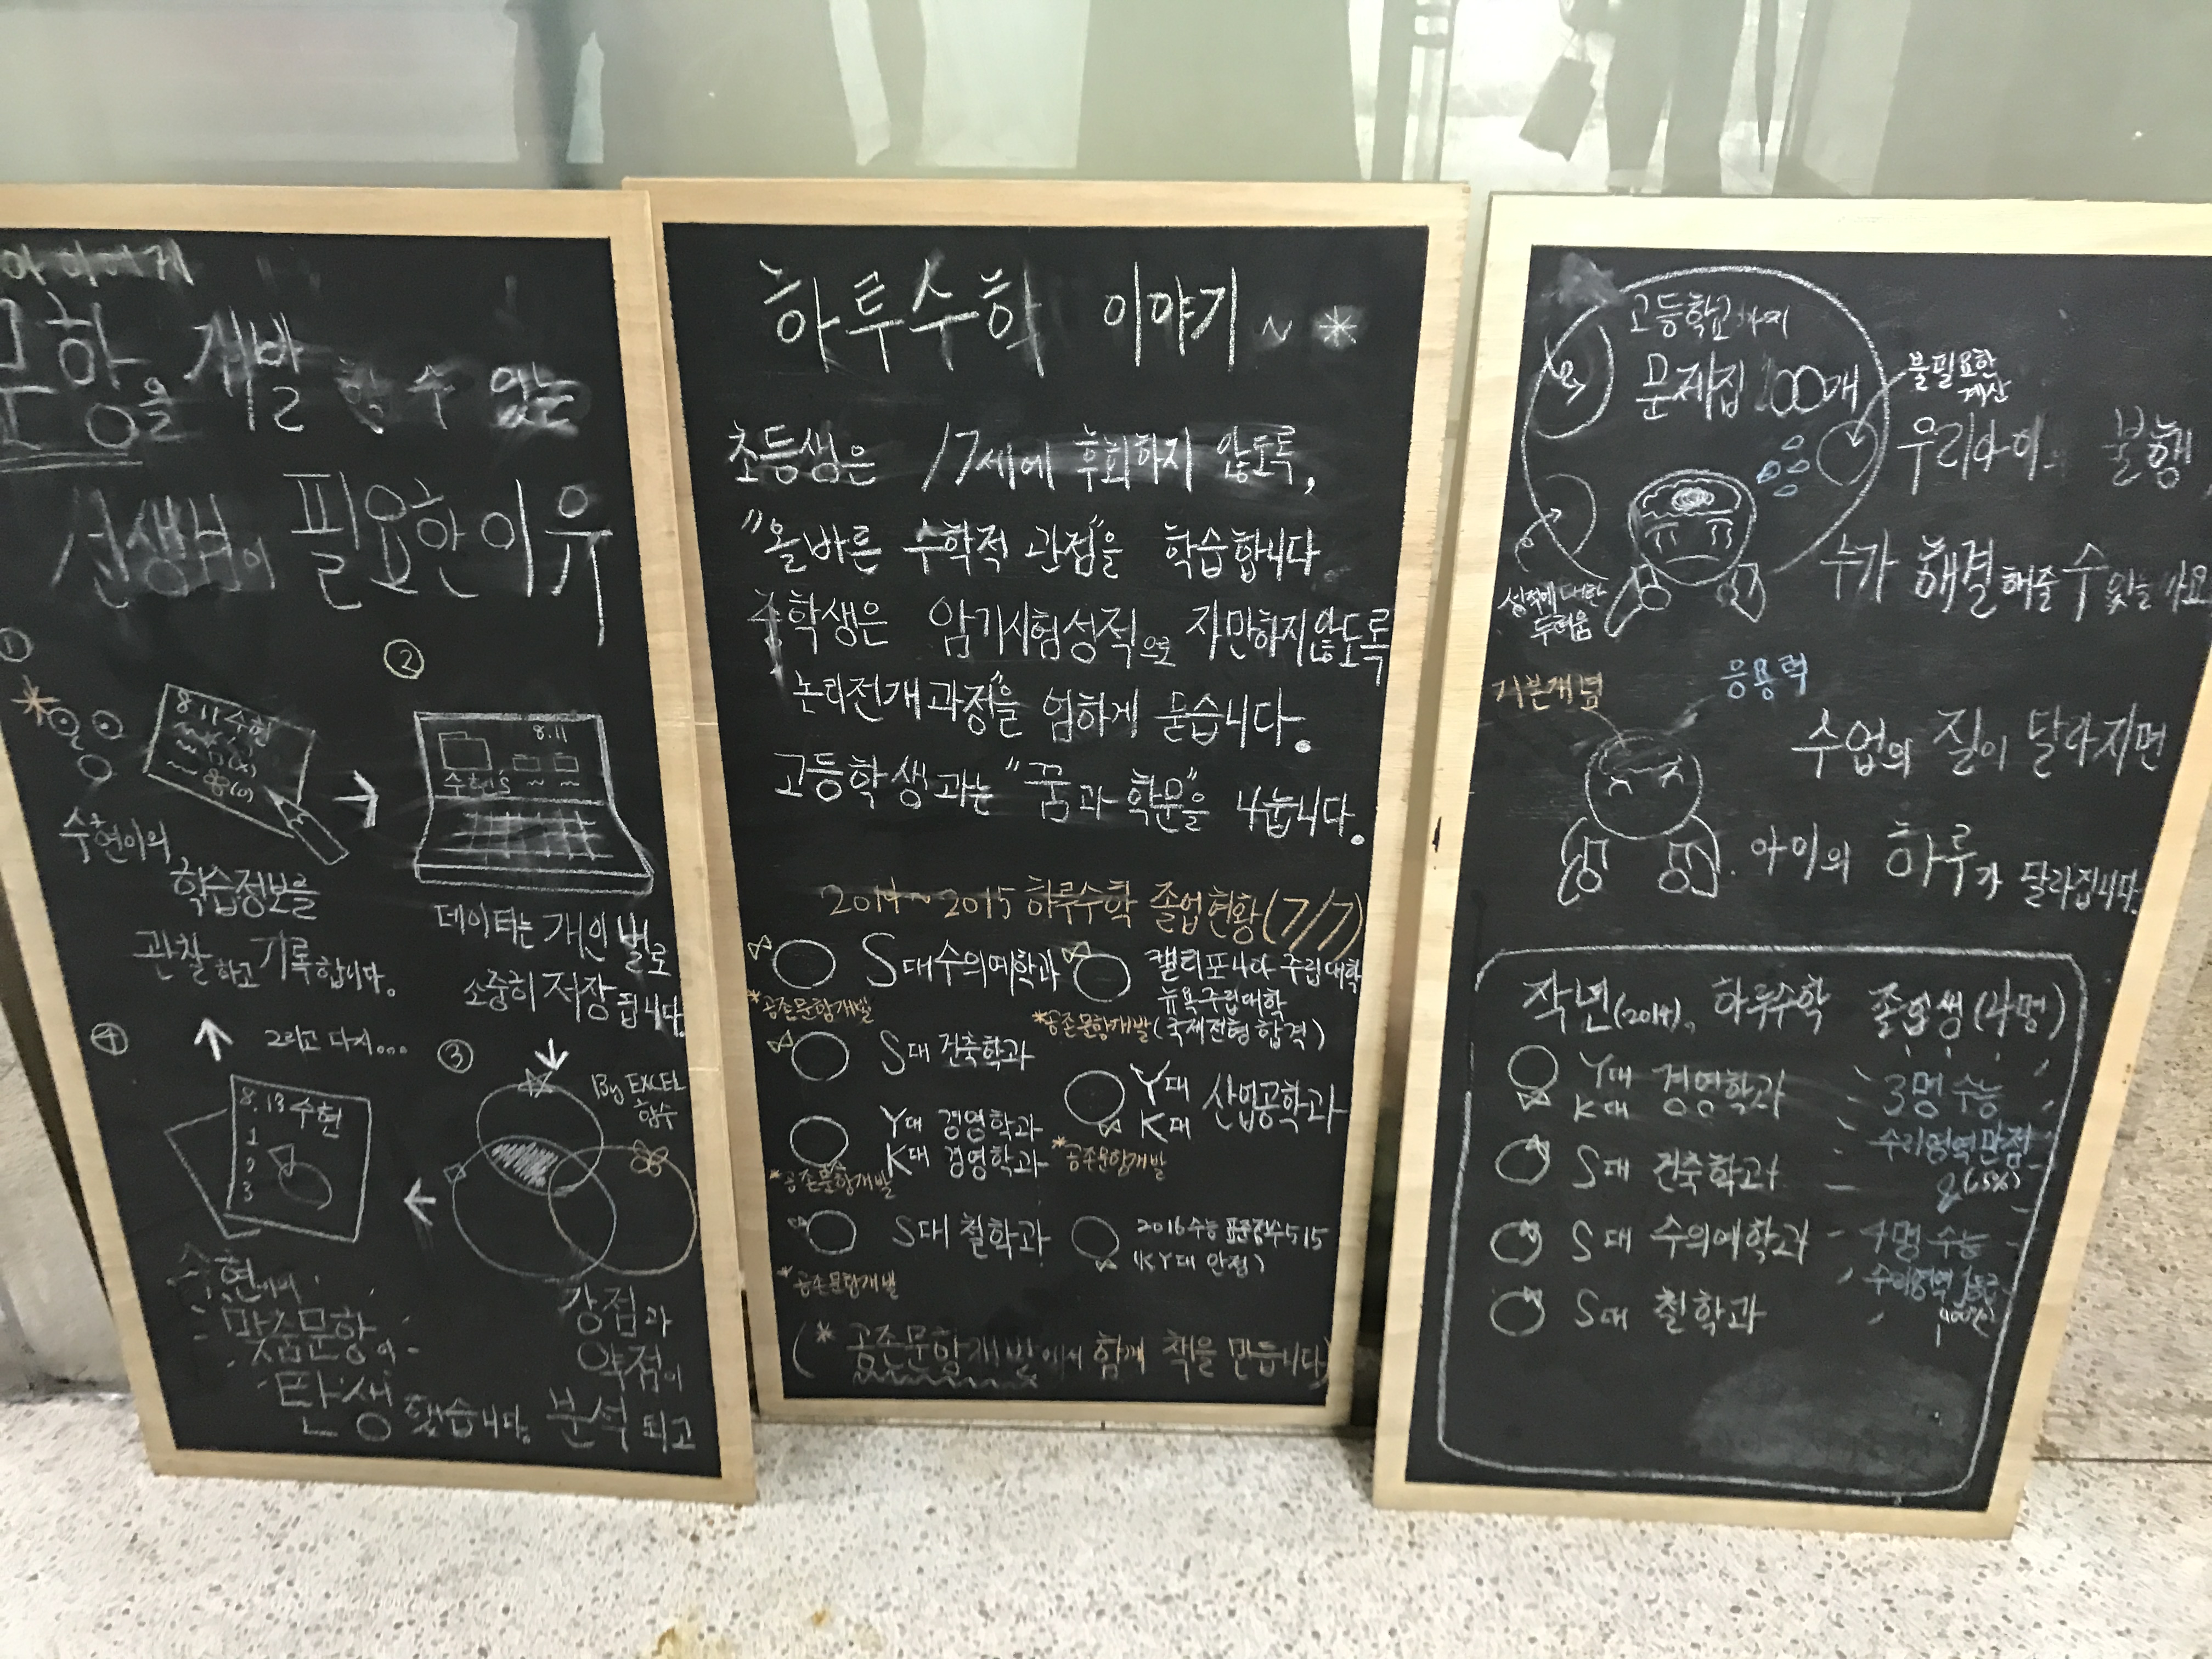 문항을 개발 할 수 있는
선생님이 필요한 이유
①
8.11 수현
수현이의
학습정보를
관찰하고 기록합니다.
②
8.11
수현's
데이터는 개인별로
소중히 저장됩니다.
③
By EXCEL
함수
강점과
약점이
분석되고
④
그리고 다시...
8.13 수현
1
2
3
수현이의
맞춤문항이
탄생했습니다.
하루수학 이야기 ~ *
초등생은 17세에 후회하지 않도록,
"올바른 수학적 관점"을 학습합니다
중학생은 암기시험성적으로 자만하지않도록
논리전개과정"을 엄하게 묻습니다.
고등학생과는 "꿈과 학문"을 나눕니다.
2014~2015 하루수학 졸업현황(7/7)
S대 수의예학과
*공존문항개발
S대 건축학과
Y대 경영학과
K대 경영학과
*공존문항개발
S대 철학과
*공존문항개발
캘리포니아 주립대학
뉴욕주립대학
*공존문항개발(국제전형 합격)
Y대 산업공학과
K대
*공존문항개발
2016수능 표준점수515
(KY대 안정)
(* 공존문항개발에서 함께 책을 만듭니다)
고등학교까지
문제집 100개
불필요한
계산
성적에 대한
두려움
우리아이의 불행,
수가 해결해줄 수 있는가요
기본개념
응용력
수업의 질이 달라지면
아이의 하루가 달라집니다.
작년(2014), 하루수학 졸업생(4명)
Y대 경영학과
K대
S대 건축학과
S대 수의예학과
S대 철학과
3명 수능
수리영역만점
4명 수능
수리영역 1등급